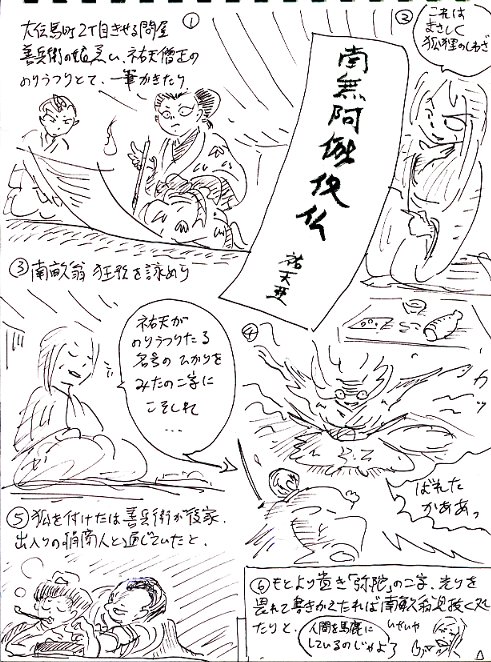 ①
大伝馬町2丁目きせる問屋
善兵衛の娘患い、祐天僧正の
のりうつりとて、一筆かきたり
②
これは
まさしく
狐狸のしわざ
南無阿
仏
祐天
③南畝翁 狂歌を詠めり
祐天が
のりうつりたる
名号のひかりを
みたの二字に
こそしれ
…
④
カッ
ばれた
かぁあっ
⑤狐を付けたは善兵衛が後家、
出入りの情商人と通じていたと。
⑥もとより貴き「弥陀」の二字、光りを
畏れて書きかえたれば南畝翁見抜く処
たりと。
人間を馬鹿に
しているのじゃよ
いせいや